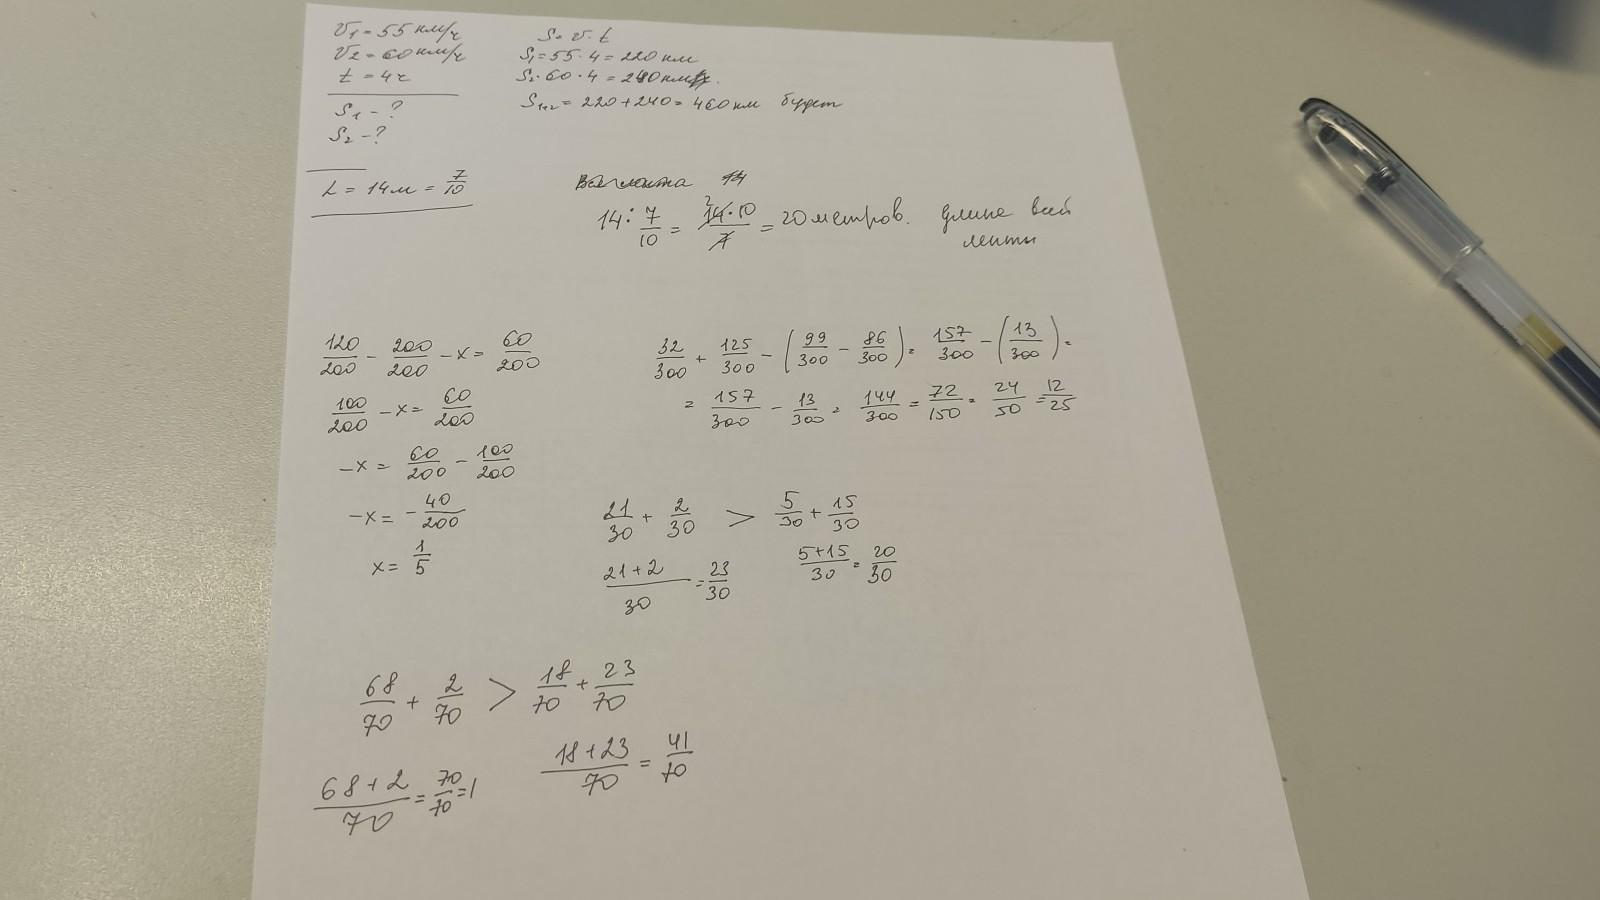 V₁ = 55 км/ч
V₂ = 60 км/ч
t = 4ч
S₁ - ?
S₂ - ?
S = v · t
S₁ = 55 · 4 = 220 км
S₂ · 60 · 4 = 240 км
S₁₊₂ = 220 + 240 = 460 км будет
L = 14м = 7/10
14 : 7/10 = 14·10/7 = 20 метров. длина всей
ленты
120/200 - 200/200 - x = 60/200
100/200 - x = 60/200
-x = 60/200 - 100/200
-x = - 40/200
x = 1/5
32/300 + 125/300 - (99/300 - 86/300) = 157/300 - (13/300) =
= 157/300 - 13/300 = 144/300 = 72/150 = 24/50 = 12/25
21/30 + 2/30 > 5/30 + 15/30
21+2/30 = 23/30 5+15/30 = 20/30
68/70 + 2/70 > 18/70 + 23/70
68+2/70 = 70/70 = 1 18+23/70 = 41/70